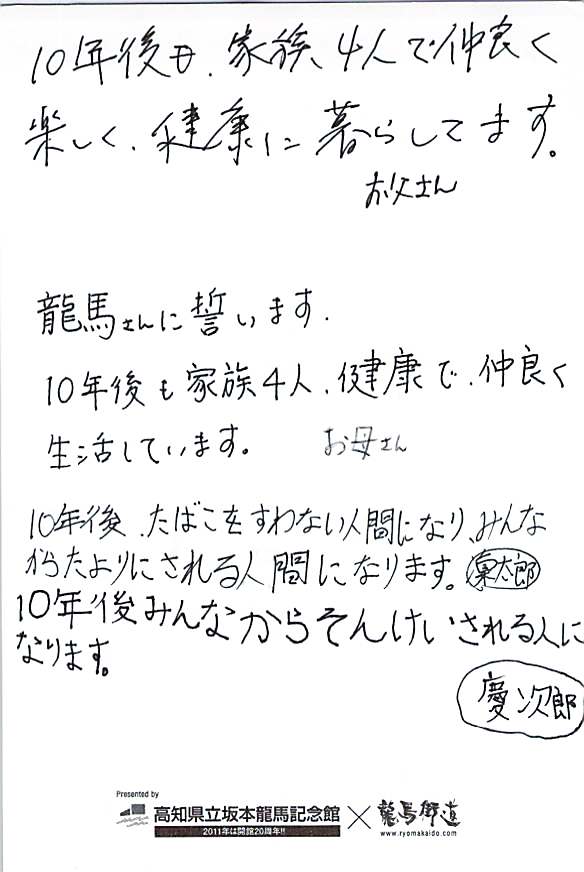 10年後も、家族、4人で仲良く
楽しく、健康に暮らしてます。
お父さん
龍馬さんに誓います.
10年後も家族4人、健康で、仲良く
生活しています。 お母さん
10年後、たばこをすわない人間になり、みんな
からたよりにされる人間になります。凜太郎
10年後みんなからそんけいされる人に
なります。
慶次郎
Presented by
高知県立坂本龍馬記念館×龍馬街道
2011年は開館20周年!! www.ryomakaido.com